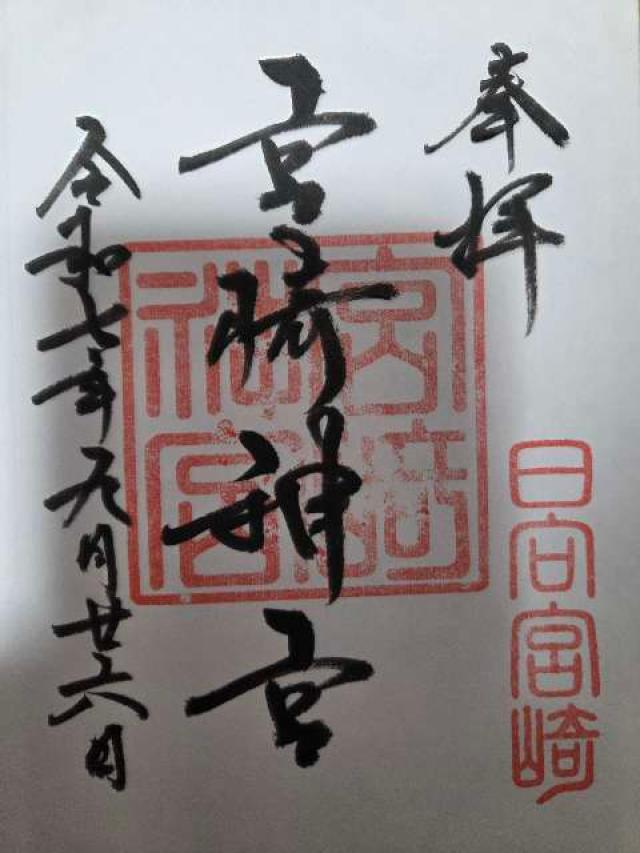 奉拝
日向宮崎
宮崎神宮
宮崎神宮
令和七年九月廿六日